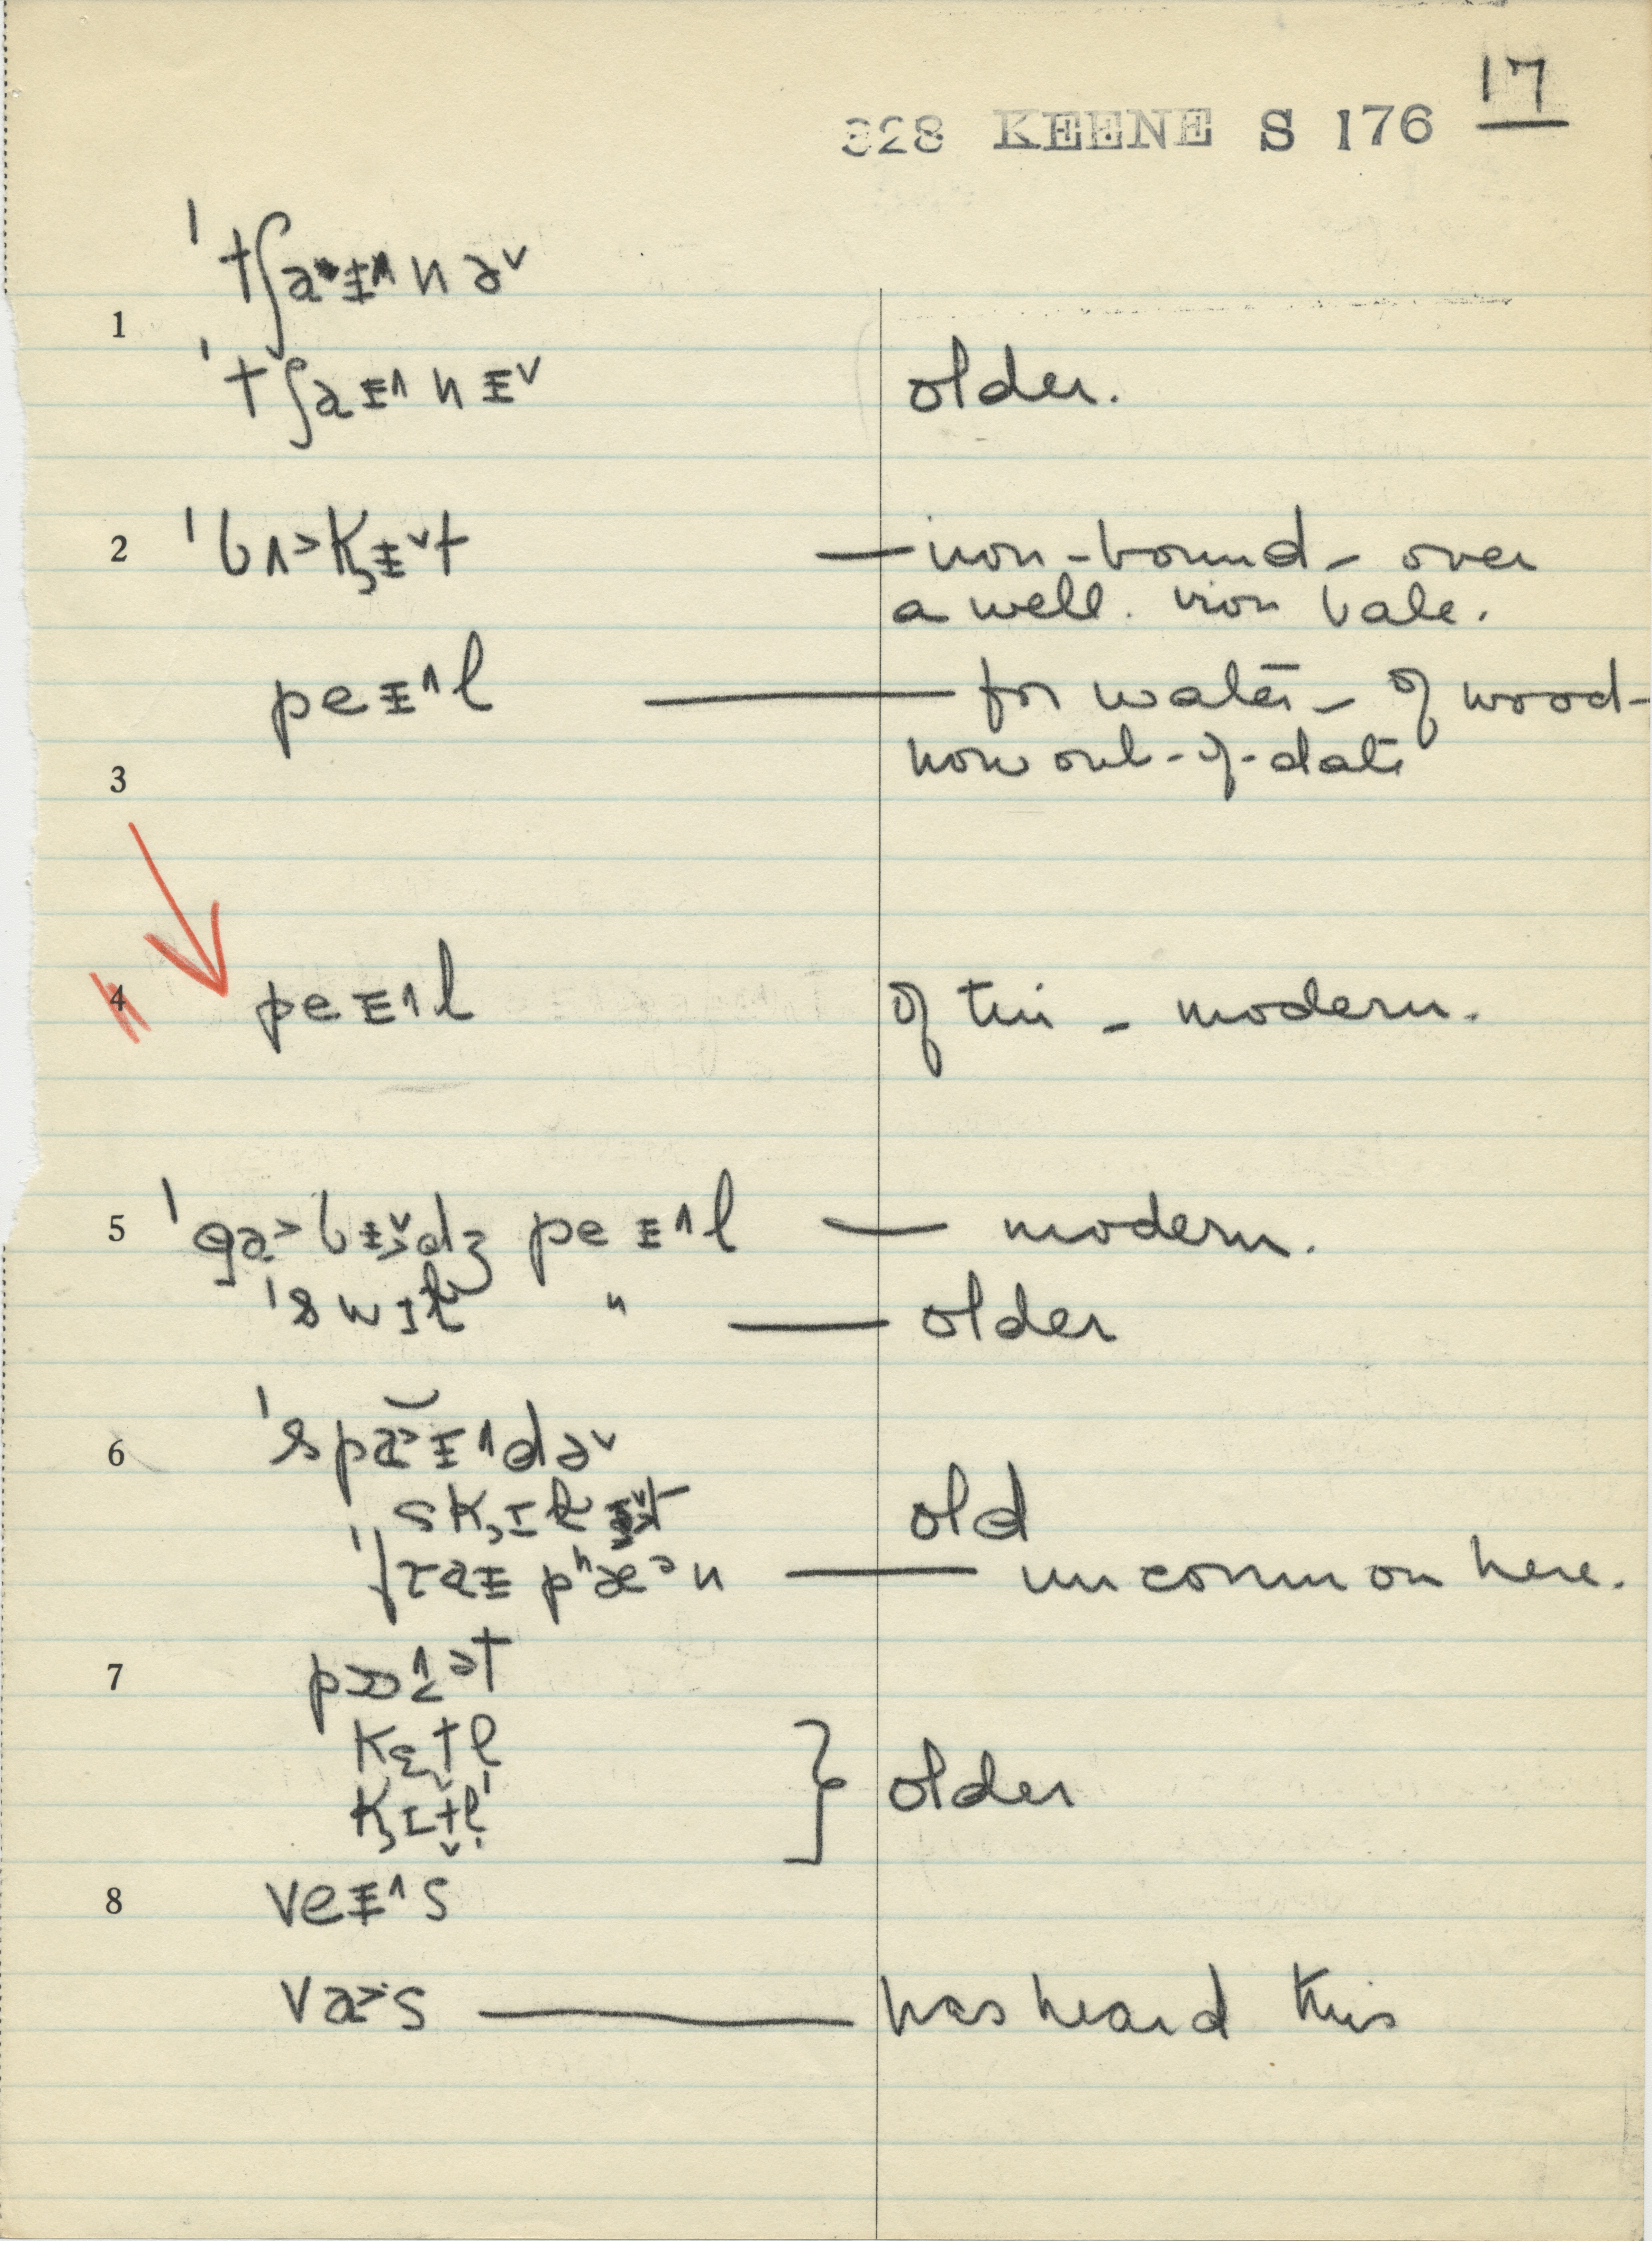 17
328 KEENE S 176
1 ˈtʃaᵻ˄nə˅
ˈtʃaᵻ˄nᵻ˅ older.
2 ˈbʌ>k̟ᵻ˅t — iron-bound – over
a well. iron bale.
peᵻ˄l — for water – of wood –
now out-of-date
3
4 peᵻ˄l of tin – modern.
5 ˈga>bᵻ˅dʒ peᵻ˄l — modern.
ˈswɪl " — older
6 ˈspa>ᵻ˄də˅
sk̟ɪlᵻ˅t old
ˈfraᵻ pʰæᵊn — uncommon here.
7 pɒ˄ət
kɛtl̩
k̟ɪtl̩ } older
8 veᵻ˄s
va>s — has heard this